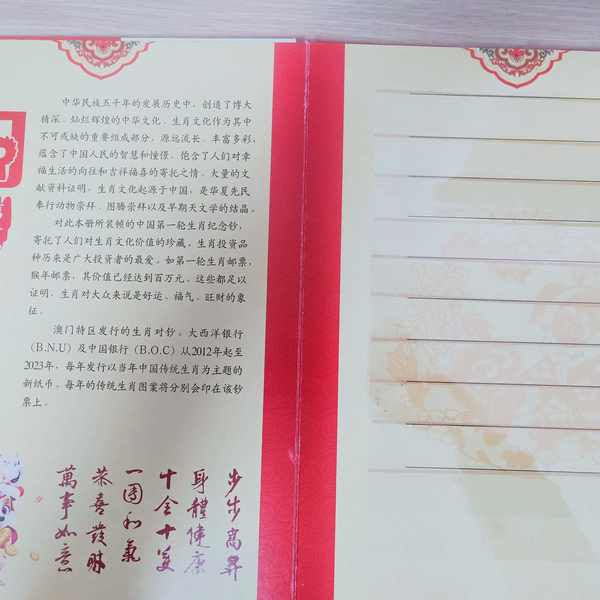 中华民族五千年的发展历史中，创造了博大
精深、灿烂辉煌的中华文化。生肖文化作为其中
不可或缺的重要组成部分，源远流长、丰富多彩，
蕴含了中国人民的智慧和憧憬，饱含了人们对幸
福生活的向往和吉祥福喜的寄托之情。大量的文
献资料证明，生肖文化起源于中国，是华夏先民
奉行动物崇拜、图腾崇拜以及早期天文学的结晶。
对此本册所装帧的中国第一轮生肖纪念钞，
寄托了人们对生肖文化价值的珍藏。生肖投资品
种历来是广大投资者的最爱，如第一轮生肖邮票，
猴年邮票，其价值已经达到百万元，这些都足以
证明，生肖对大众来说是好运、福气、旺财的象
征。
澳门特区发行的生肖对钞，大西洋银行
（B.N.U）及中国银行（B.O.C）从2012年起至
2023年，每年发行以当年中国传统生肖为主题的
新纸币。每年的传统生肖图案将分别会印在该钞
票上。
步步高昇
身體健康
十全十美
一團和氣
恭喜發財
萬事如意